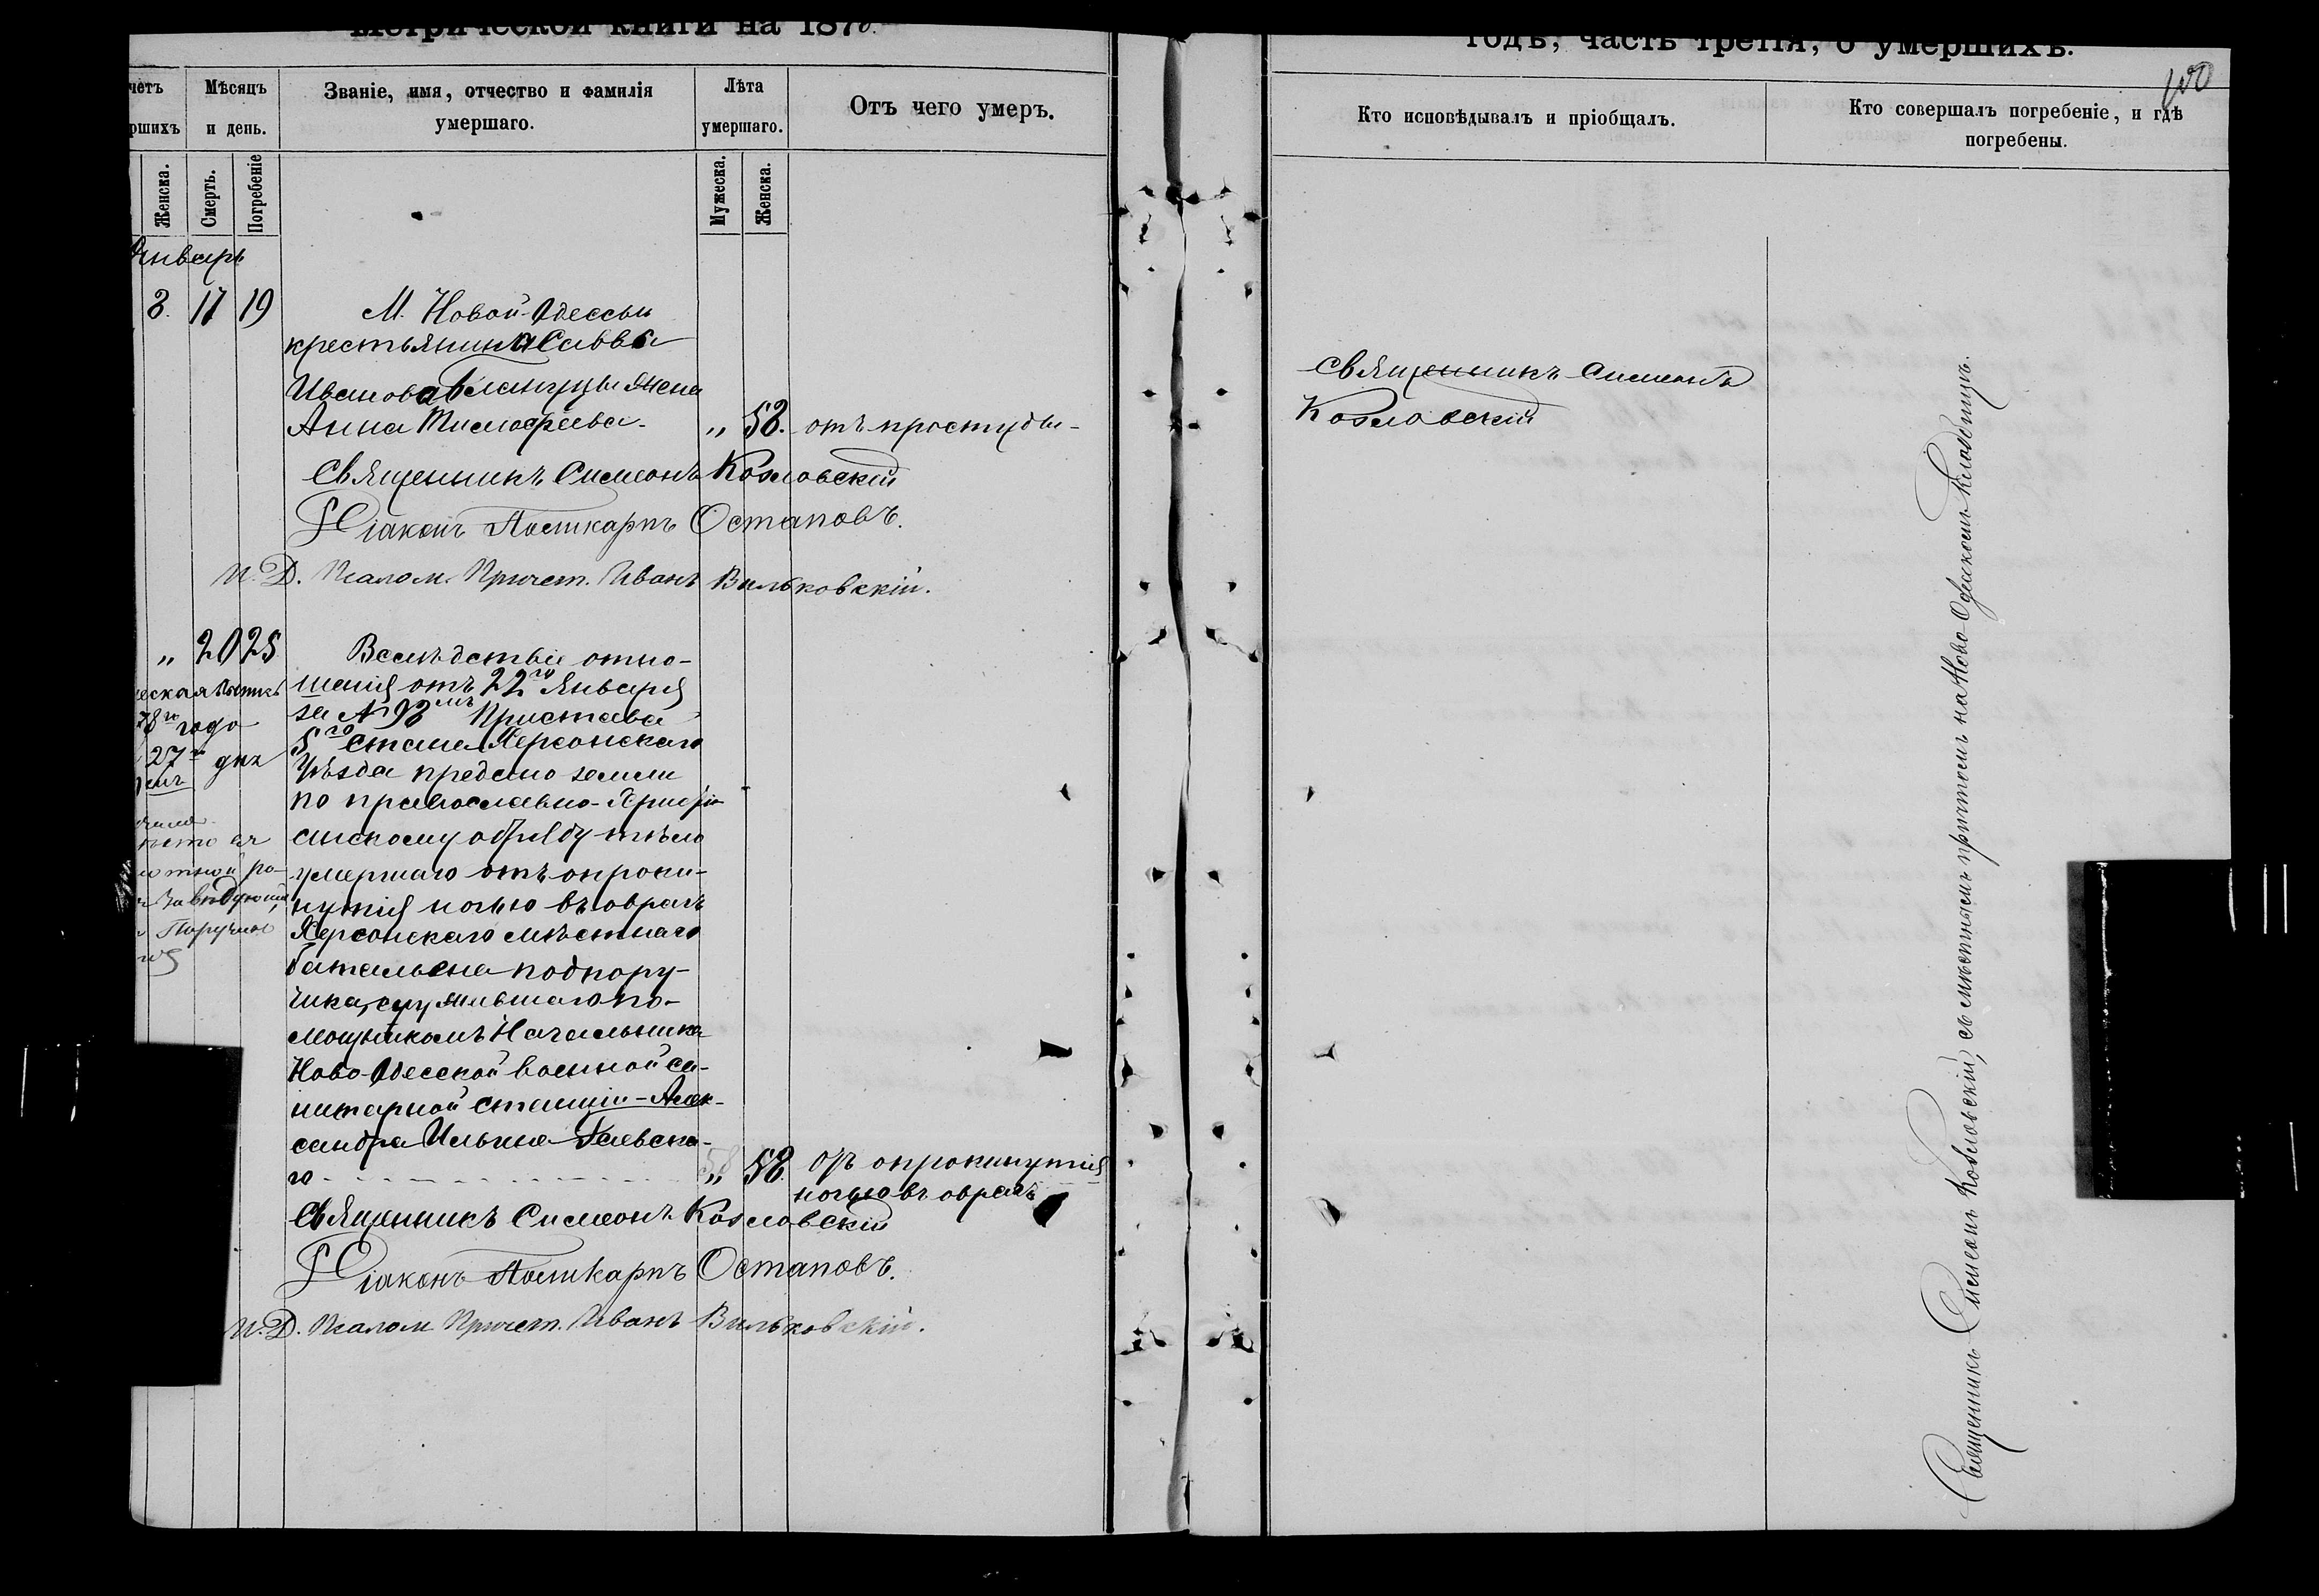 Метрической книги на 1878
счетъ
умершихъ
Мѣсяцъ
и день.
Званіе, имя, отчество и фамилія
умершаго.
Лѣта
умершаго.
Отъ чего умеръ.
Женска.
Смерть.
Погребеніе
Мужеска.
Женска.
Январь
3. 17 19
М. Новой-Одессы
крестьянина Саввы
Иванова жена
Анна Тимофѣева. „ 58. отъ простуды-
Священникъ Симеонъ Козловскій
Діаконъ Поликарпъ Остаповъ.
И. Д. Псалом. Причет. Иванъ Вильковскій.
„ 20 25
Вслѣдствіе отно-
шенія отъ 22го Января
за № 93мъ Пристава
5го Стана Херсонскаго
Уѣзда предано земли
по православно-Христіа-
нскому обряду тѣло
умершаго отъ опроки-
нутія ночью въ оврагъ
Херсонскаго мѣстнаго
баталіона подпору-
чика, служившаго по-
мощникомъ Начальника
Ново-Одесской военной са-
нитарной станціи-Алек-
сандра Ильина Гаевска-
го - - - - „ 58. отъ опрокинутія
ночью въ оврагъ
Священникъ Симеонъ Козловскій
Діаконъ Поликарпъ Остаповъ.
И. Д. Псалом Причет. Иванъ Вильковскій.
78го года
27го дня
ро-
Завѣдующій
Поручикъ
годъ, часть третія, о умершихъ.
100
Кто исповѣдывалъ и пріобщалъ.
Кто совершалъ погребеніе, и гдѣ
погребены.
Священникъ Симеонъ
Козловскій
Священникъ Симеонъ Козловскій, съ мѣстнымъ причтомъ на Ново-Одесскомъ Кладбищѣ.